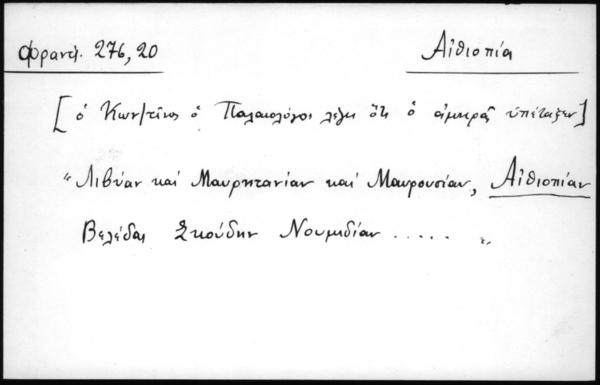 Φραντζ. 276, 20 Αἰθιοπία
[ ὁ Κων/τῖνος ὁ Παλαιολόγος λέγει ὅτι ὁ ἀμηρᾶς ὑπέταξεν]
"Λιβύαν καὶ Μαυρητανίαν καὶ Μαυρουσίαν, Αἰθιοπίαν
Βελέδαι Σκούδην Νουμιδίαν ..... "